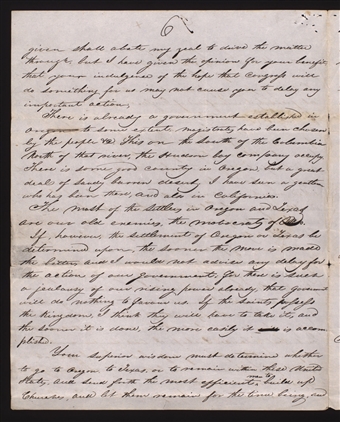 6
given shall abate my zeal to drive the matter
through, but I have given the opinion for your benefit
that your indulgence of the hope that Congress will
do something for us may not cause you to delay any
important action,
There is already a government established in
Oregon to some extent, magistrates have been chosen
by the people &c This on the South of the Columbia
North of that river, the Hudson bay company occupy
There is some good country in Oregon, but a great
deal of Sandy barren desert, I have seen a gentleman
who has been there and also in California.
The most of the Settlers in Oregon and Texas
are our old enemies, the mobocrats of
If, however, the settlement of Oregon or Texas be
determined upon, the sooner the move is made
the better, and I would not advise any delay for
the action of our government, for there is such
a jealousy of our rising power already, that government
will do nothing to favour us. If the Saints possess
the Kingdom, I think they will have to take it; and
the sooner it is done, the more easily it is accom
plished.
Your Superior wisdom must determine whether
to go to Oregon to Texas, or to remain within these United
States, and send forth the most efficient men to build up
Churches, and let them remain for the time being, and